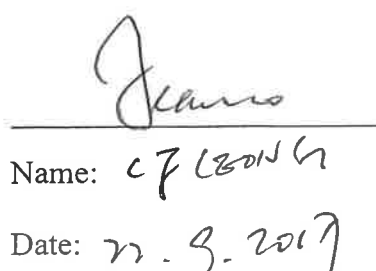 Name: CF LEONG
Date: 22.9.2017